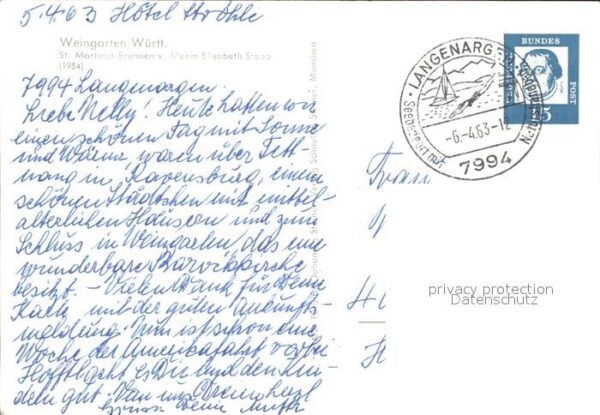 5.4.63 Hotel Ströhle
Weingarten Württ.
St. Martinus-Brunnen v. Maria Elisabeth Stapp
(1954)
7994 Langenargen.
Liebe Nelly! Heute hatten wir
einen schönen Tag mit Sonne
und Wärme, waren über Tett-
nang in Ravensburg, einem
schönen Städtchen mit mittel-
alterlichen Häusern und zum
Schluss in Weingarten, das eine
wunderbare Barockkirche
besitzt. – Vielen Dank für Deine
Karte mit der guten Ankunfts-
meldung. Nun ist schon eine
Woche der Amerikafahrt vorbei
Hofftl. geht es Dir und den Kin-
dern gut. Von uns
Grüsse Deine Mutti
LANGENARGEN
-6.-4.63-12
7994
BUNDES
POST
15
Frau
privacy protection
Datenschutz